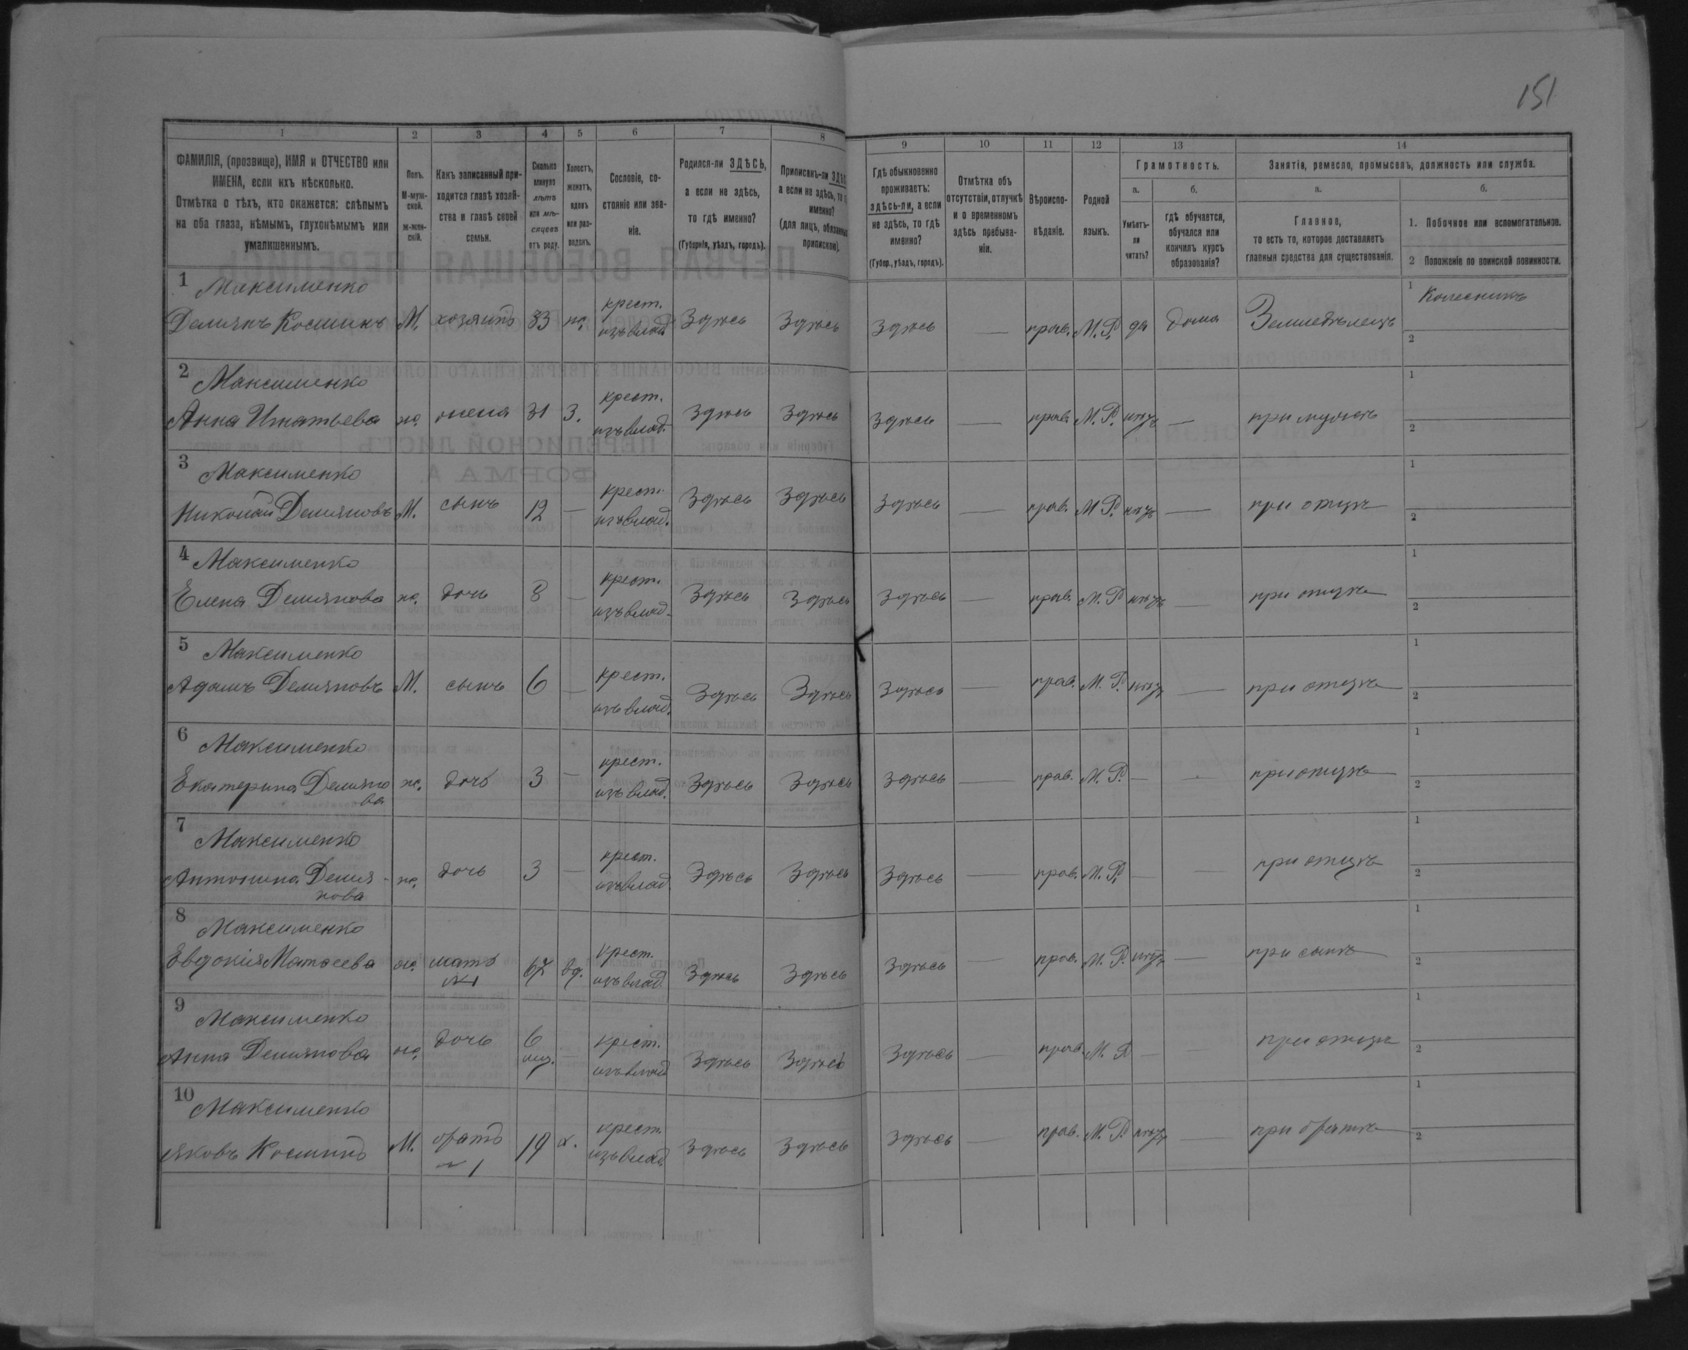 151
1 2 3 4 5 6 7 8 9 10 11 12 13 14
ФАМИЛІЯ, (прозвище), ИМЯ и ОТЧЕСТВО или
ИМЕНА, если ихъ нѣсколько.
Отмѣтка о тѣхъ, кто окажется: слѣпымъ
на оба глаза, нѣмымъ, глухонѣмымъ или
умалишеннымъ.
Полъ.
М-муж-
ской.
ж-жен-
скій.
Какъ записанный при-
ходится главѣ хозяй-
ства и главѣ своей
семьи.
Сколько
минуло
лѣтъ
или мѣ-
сяцевъ
отъ роду.
Холостъ,
женатъ,
вдовъ
или раз-
веденъ.
Сословіе, со-
стояніе или зва-
ніе.
Родился-ли ЗДѢСЬ,
а если не здѣсь,
то гдѣ именно?
(Губернія, уѣздъ, городъ).
Приписанъ-ли ЗДѢС
а если не здѣсь, то г
именно?
(для лицъ, обязанны
припискою).
Гдѣ обыкновенно
проживаетъ:
здѣсь-ли, а если
не здѣсь, то гдѣ
именно?
(Губер., уѣздъ, городъ).
Отмѣтка объ
отсутствіи, отлучкѣ
и о временномъ
здѣсь пребыва-
ніи.
Вѣроиспо-
вѣданіе.
Родной
языкъ.
Грамотность.
а.
Умѣетъ-
ли
читать?
б.
гдѣ обучается,
обучался или
кончилъ курсъ
образованія?
Занятія, ремесло, промыселъ, должность или служба.
а.
Главное,
то есть то, которое доставляетъ
главныя средства для существованія.
б.
1. Побочное или вспомогательное.
2 Положеніе по воинской повинности.
1 Максименко
Демянъ Косминъ М. хозяинъ 33 ж. крест. изъ влад. Здѣсь Здѣсь Здѣсь — прав. М.Р. да дома Земледѣлецъ 1 Колесникъ
2
2 Максименко 1
Анна Игнатьева ж. жена 31 З. крест. изъ влад. Здѣсь Здѣсь Здѣсь — прав. М.Р. нѣтъ — при мужѣ 2
3 Максименко 1
Николай Демяновъ М. сынъ 12 — крест. изъ влад. Здѣсь Здѣсь Здѣсь — прав. М.Р. нѣтъ — при отцѣ 2
4 Максименко 1
Елена Демянова ж. дочь 8 — крест. изъ влад. Здѣсь Здѣсь Здѣсь — прав. М.Р. нѣтъ — при отцѣ 2
5 Максименко 1
Адамъ Демяновъ М. сынъ 6 — крест. изъ влад. Здѣсь Здѣсь Здѣсь — прав. М.Р. нѣтъ — при отцѣ 2
6 Максименко 1
Екатерина Демяно ж. дочь 3 — крест. изъ влад. Здѣсь Здѣсь Здѣсь — прав. М.Р. — — при отцѣ 2
ва
7 Максименко 1
Антонина Демя- ж. дочь 3 — крест. изъ влад. Здѣсь Здѣсь Здѣсь — прав. М.Р. — — при отцѣ 2
нова
8 Максименко 1
Евдокія Матѳеева ж. мать 67 вд. крест. изъ влад. Здѣсь Здѣсь Здѣсь — прав. М.Р. нѣтъ — при сынѣ 2
№1
9 Максименко 1
Анна Демянова ж. дочь 6 мѣс. — крест. изъ влад. Здѣсь Здѣсь Здѣсь — прав. М.Р. — — при отцѣ 2
10 Максименко 1
Яковъ Косминъ М. братъ 19 х. крест. изъ влад. Здѣсь Здѣсь Здѣсь — прав. М.Р. нѣтъ — при братѣ 2
№1